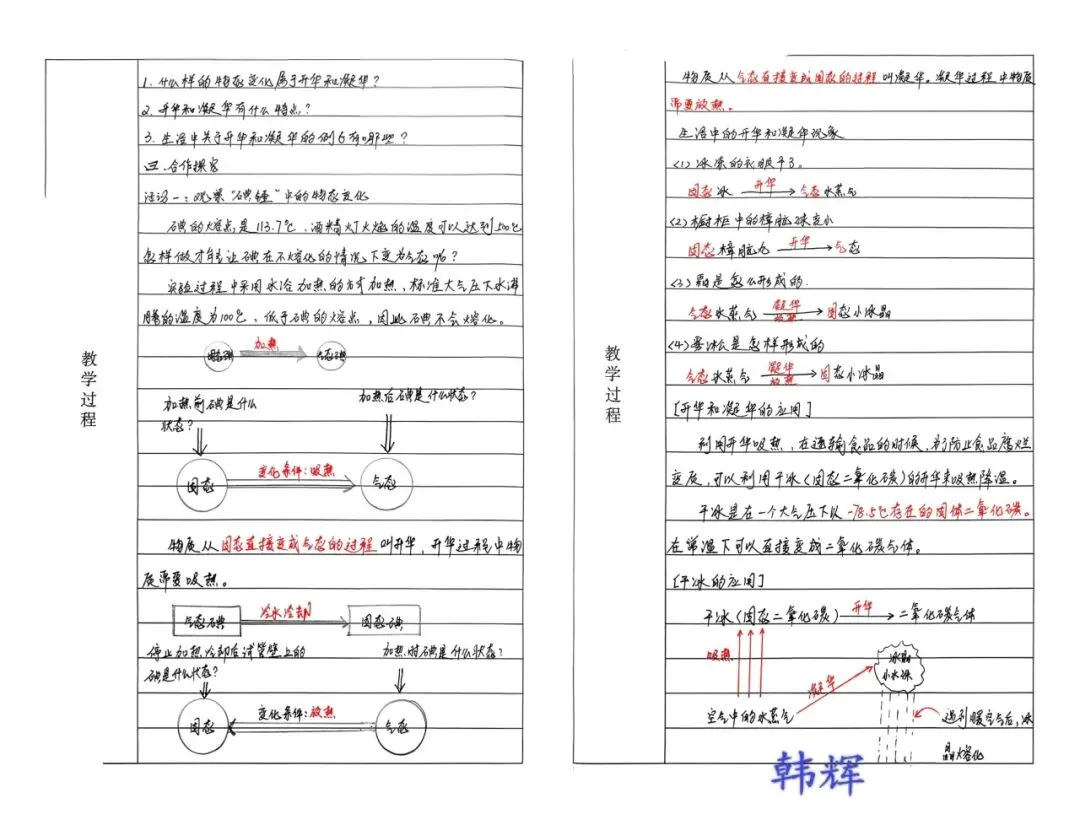 教学过程
1. 什么样的物态变化属于升华和凝华？
2. 升华和凝华有什么特点？
3. 生活中关于升华和凝华的例子有哪些？
四.合作探究
活动一：观察“碘锤”中的物态变化
碘的熔点是113.7℃，酒精灯火焰的温度可以达到500℃
怎样做才能让碘在不熔化的情况下变为气态呢？
实验过程中采用水浴加热的方式加热，标准大气压下水沸
腾的温度为100℃，低于碘的熔点，因此碘不会熔化。
固态碘 加热 气态碘
加热前碘是什么
状态？
加热后碘是什么状态？
固态 变化条件：吸热 气态
物质从固态直接变成气态的过程叫升华，升华过程中物
质需要吸热。
气态碘 冷水冷却 固态碘
停止加热冷却后试管壁上的
碘是什么状态？
加热时碘是什么状态？
固态 变化条件：放热 气态
教学过程
物质从气态直接变成固态的过程叫凝华。凝华过程中物质
需要放热。
生活中的升华和凝华现象
(1) 冰冻的衣服干了。
固态冰 升华 气态水蒸气
(2) 橱柜中的樟脑球变小
固态樟脑丸 升华 气态
(3) 霜是怎么形成的.
气态水蒸气 凝华 放热 固态小冰晶
(4) 雾凇是怎样形成的
气态水蒸气 凝华 放热 固态小冰晶
[升华和凝华的应用]
利用升华吸热，在运输食品的时候，为防止食品腐烂
变质，可以利用干冰（固态二氧化碳）的升华来吸热降温。
干冰是在一个大气压下以-78.5℃存在的固体二氧化碳。
在常温下可以直接变成二氧化碳气体。
[干冰的应用]
干冰（固态二氧化碳） 升华 二氧化碳气体
吸热
凝华
冰晶
小水珠
空气中的水蒸气
遇到暖空气后，冰
晶熔化
韩辉